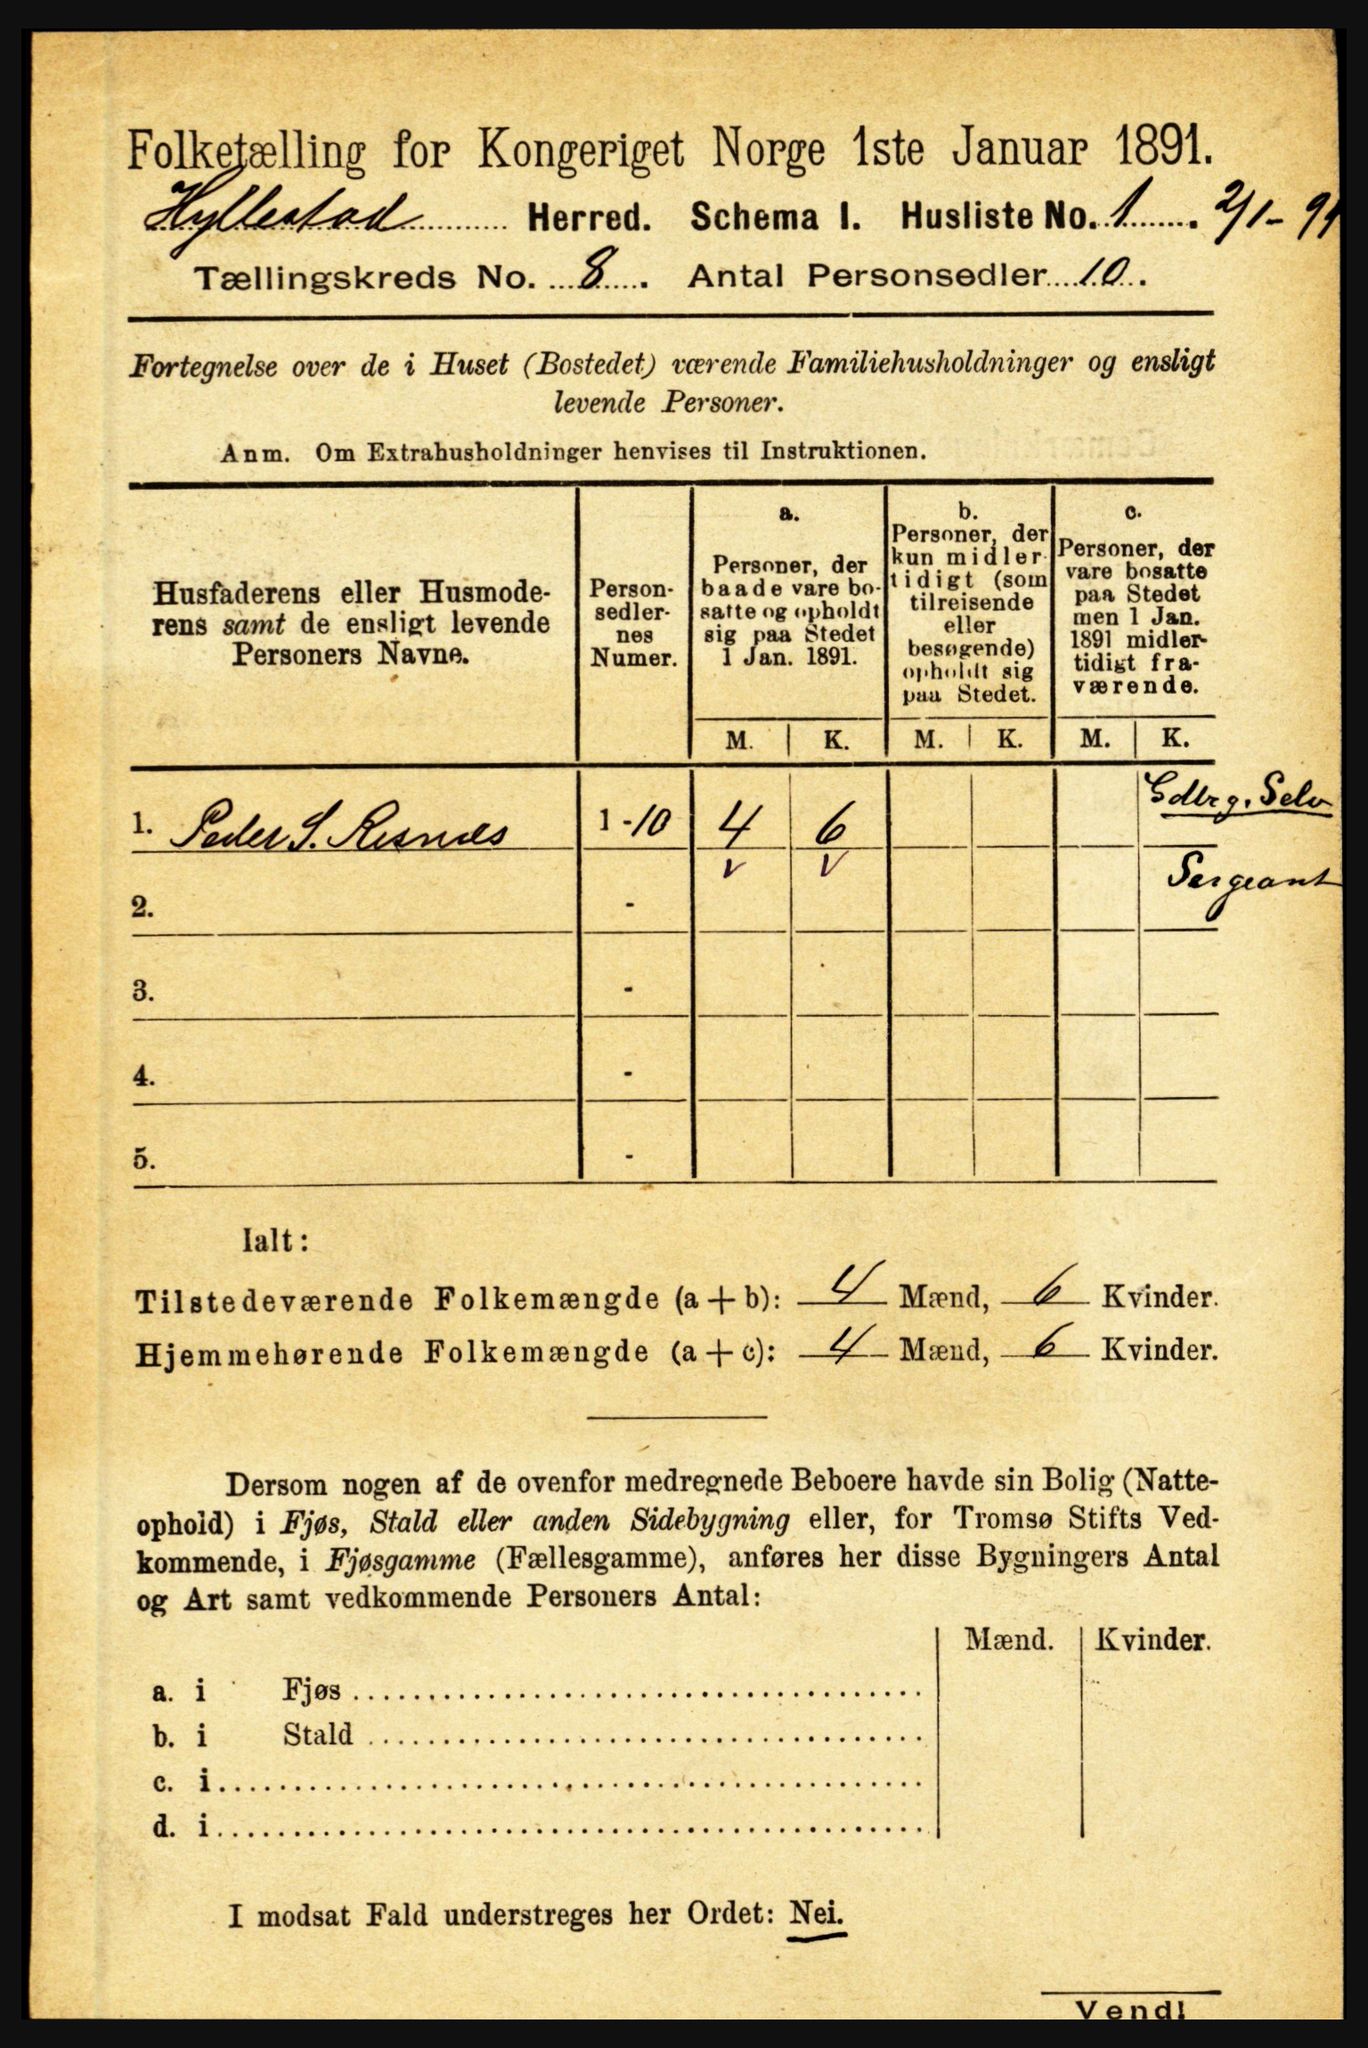 Folketælling for Kongeriget Norge 1ste Januar 1891.
Hyllestad Herred. Schema I. Husliste No. 1. 2/1-91
Tællingskreds No. 8. Antal Personsedler 10.
Fortegnelse over de i Huset (Bostedet) værende Familiehusholdninger og ensligt
levende Personer.
Anm. Om Extrahusholdninger henvises til Instruktionen.
Husfaderens eller Husmode-
rens samt de ensligt levende
Personers Navne.
Person-
sedler-
nes
Numer.
a.
Personer, der
baade vare bo-
satte og opholdt
sig paa Stedet
1 Jan. 1891.
b.
Personer, der
kun midler-
tidigt (som
tilreisende
eller
besøgende)
opholdt sig
paa Stedet.
c.
Personer, der
vare bosatte
paa Stedet
men 1 Jan.
1891 midler-
tidigt fra-
værende.
M. K. M. K. M. K.
1. Peder S. Risnæs 1-10 4 6 Selv
v v Sergeant
2. -
3. -
4. -
5. -
Ialt:
Tilstedeværende Folkemængde (a+b): 4 Mænd, 6 Kvinder.
Hjemmehørende Folkemængde (a+c): 4 Mænd, 6 Kvinder.
Dersom nogen af de ovenfor medregnede Beboere havde sin Bolig (Natte-
ophold) i Fjøs, Stald eller anden Sidebygning eller, for Tromsø Stifts Ved-
kommende, i Fjøsgamme (Fællesgamme), anføres her disse Bygningers Antal
og Art samt vedkommende Personers Antal:
Mænd. Kvinder.
a. i Fjøs
b. i Stald
c. i
d. i
I modsat Fald understreges her Ordet: Nei.
Vend!